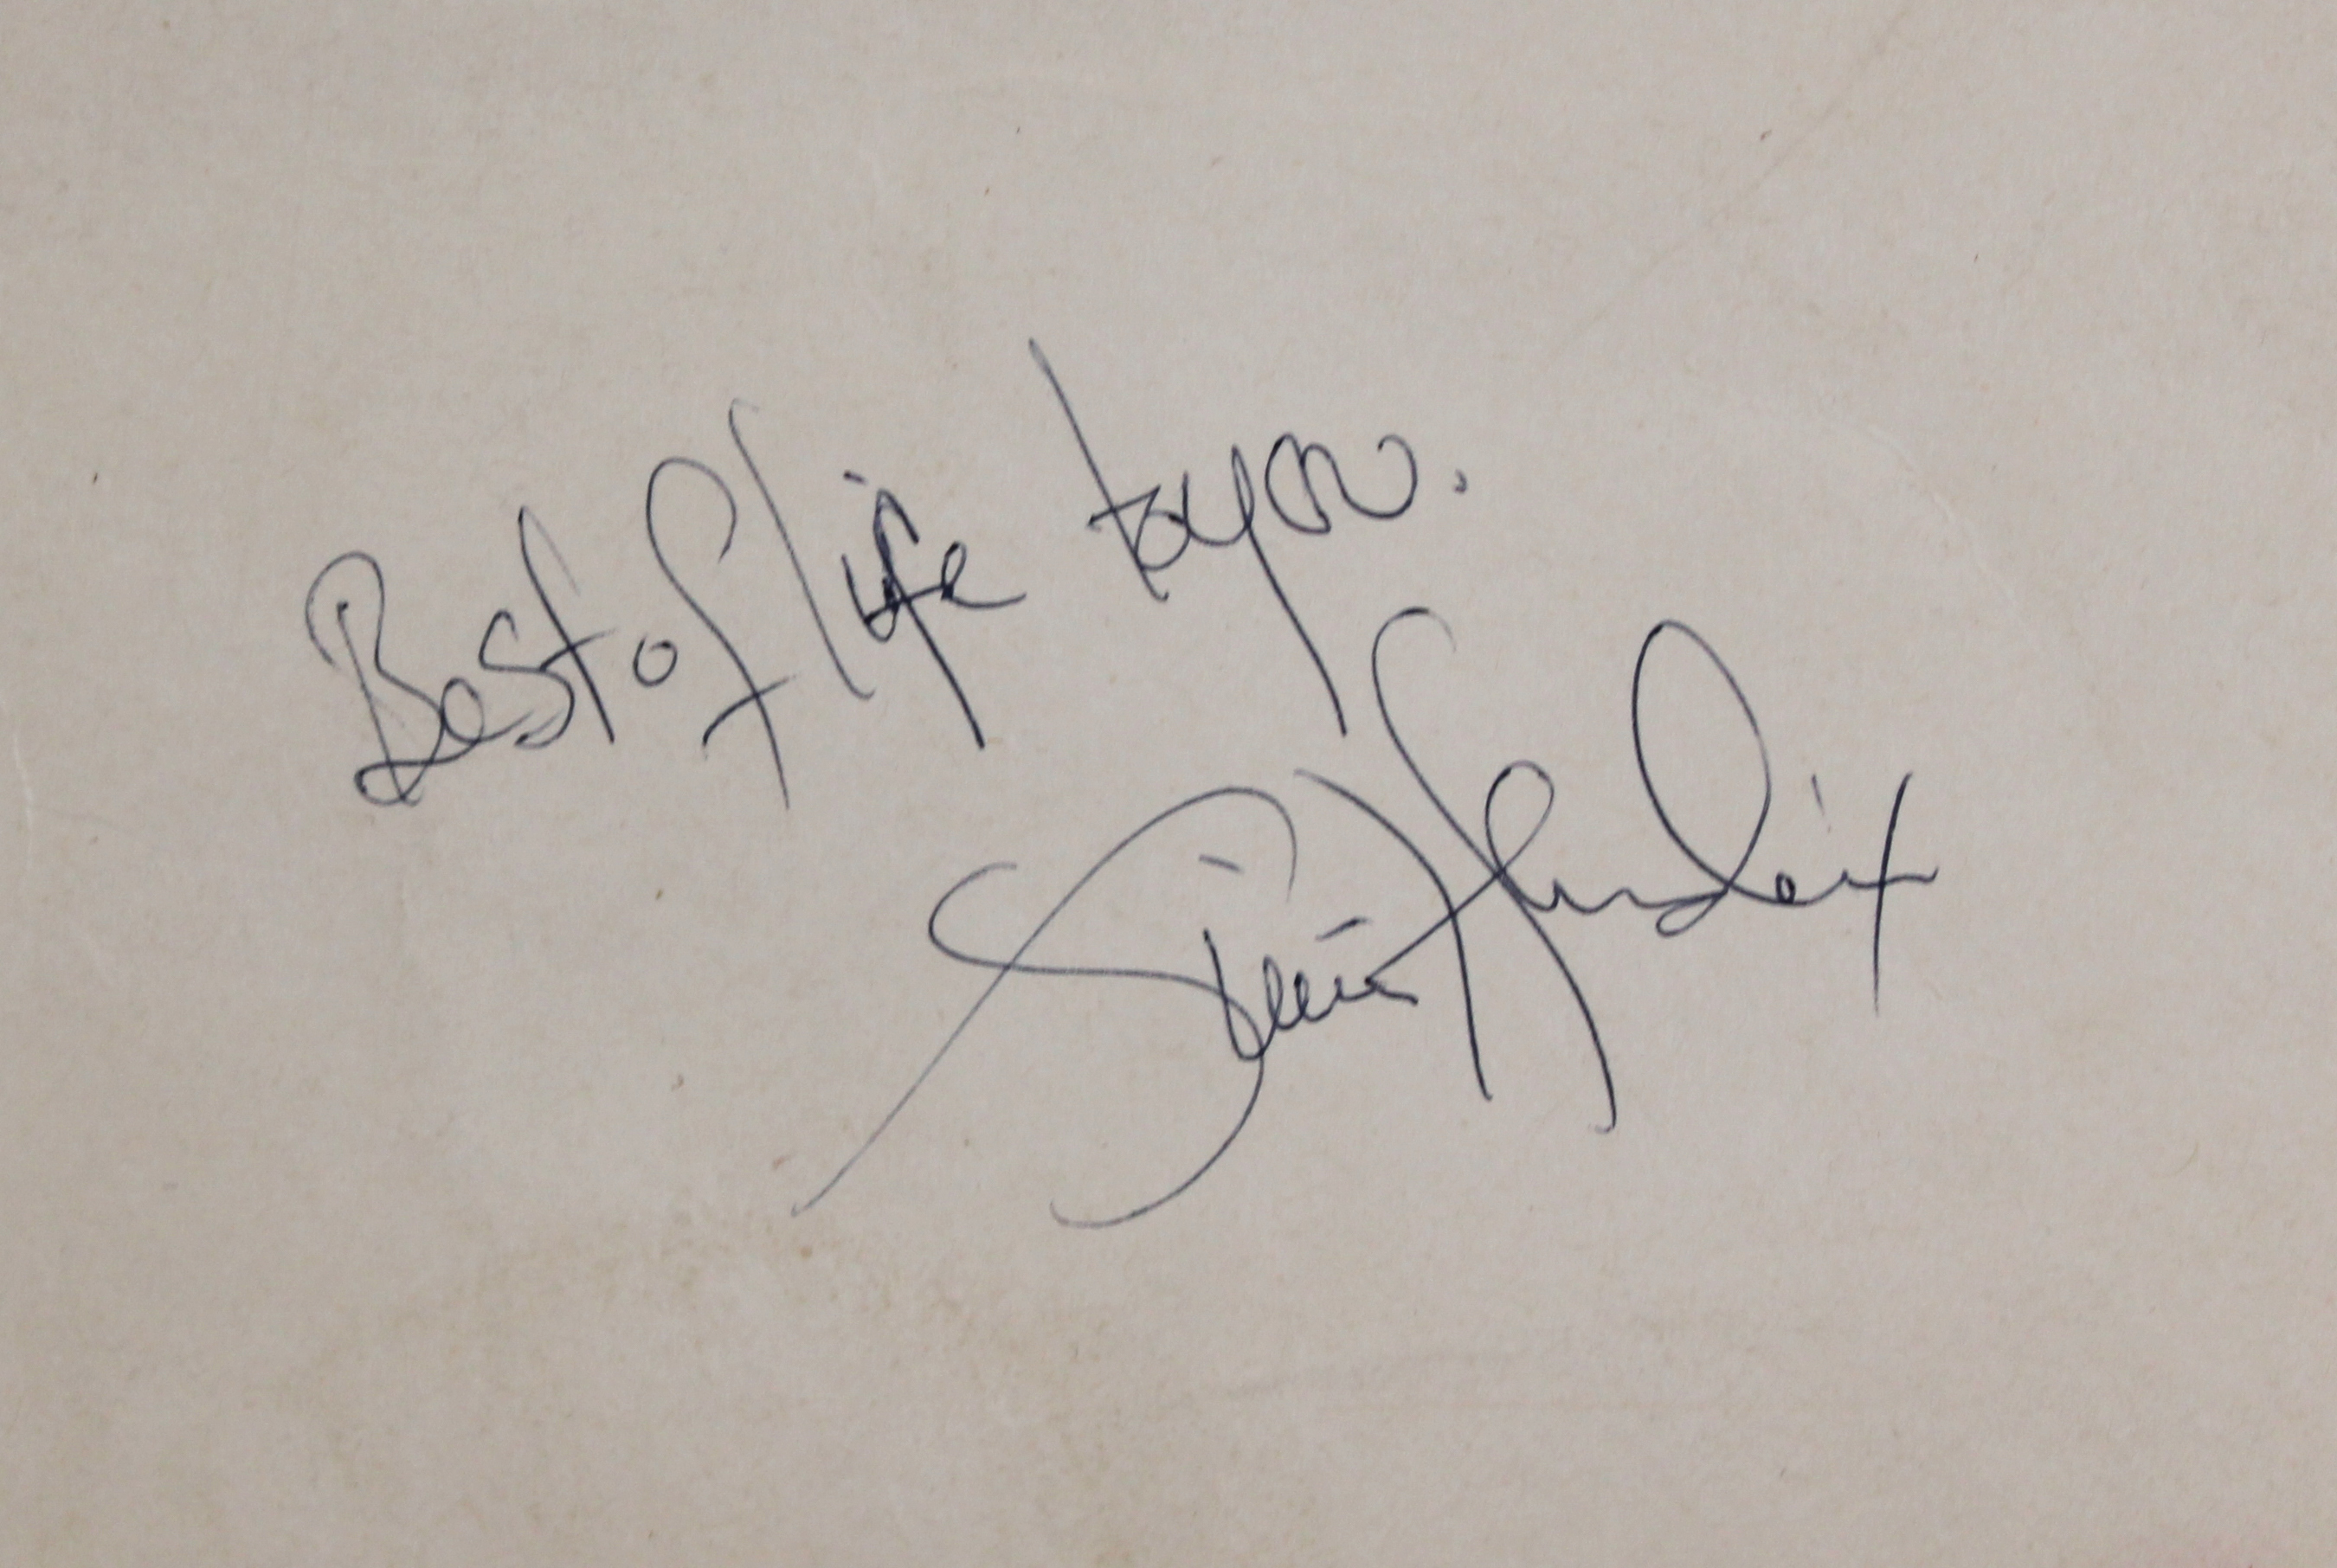 Best of life to you.
Jimi Hendrix